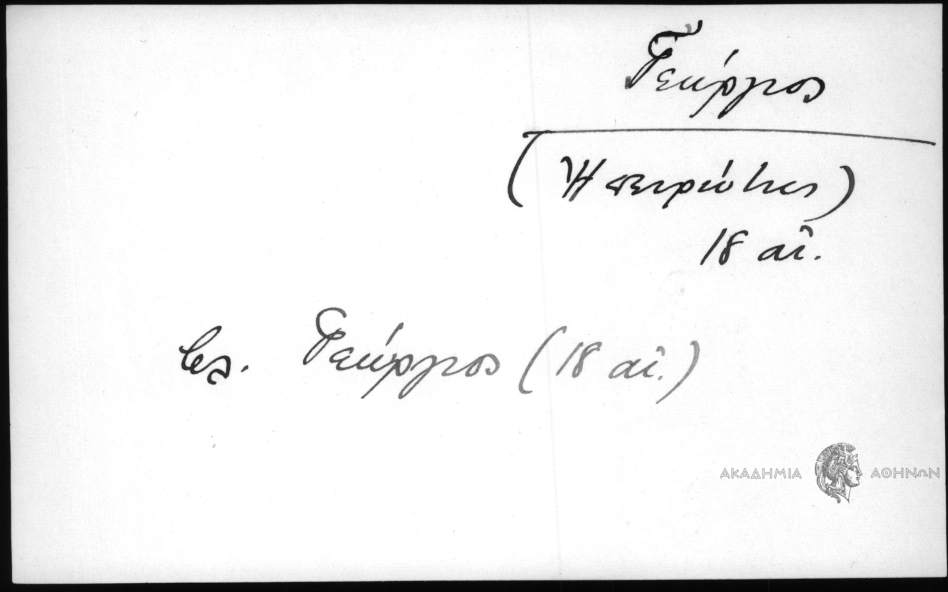 Γεώργιος
(Ἠπειρώτης)
18 αἰ.
βλ. Γεώργιος (18 αἰ.)
ΑΚΑΔΗΜΙΑ ΑΘΗΝΩΝ